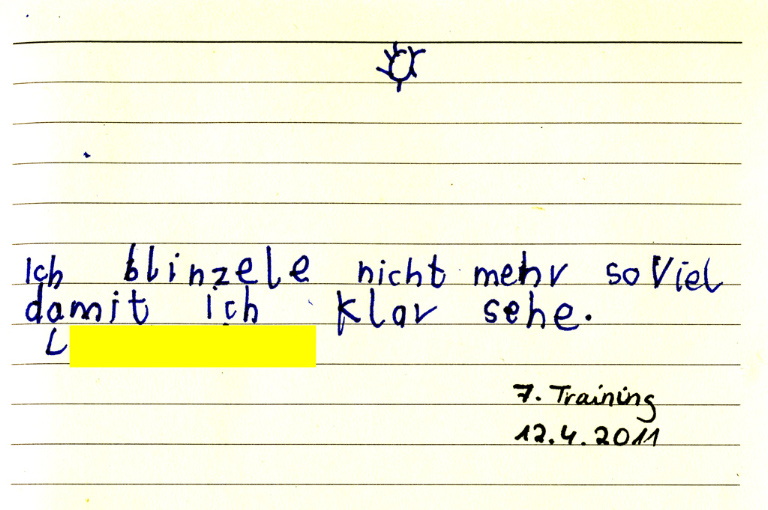 Ich blinzele nicht mehr soViel
damit ich klar sehe.
L
7. Training
12.4.2011